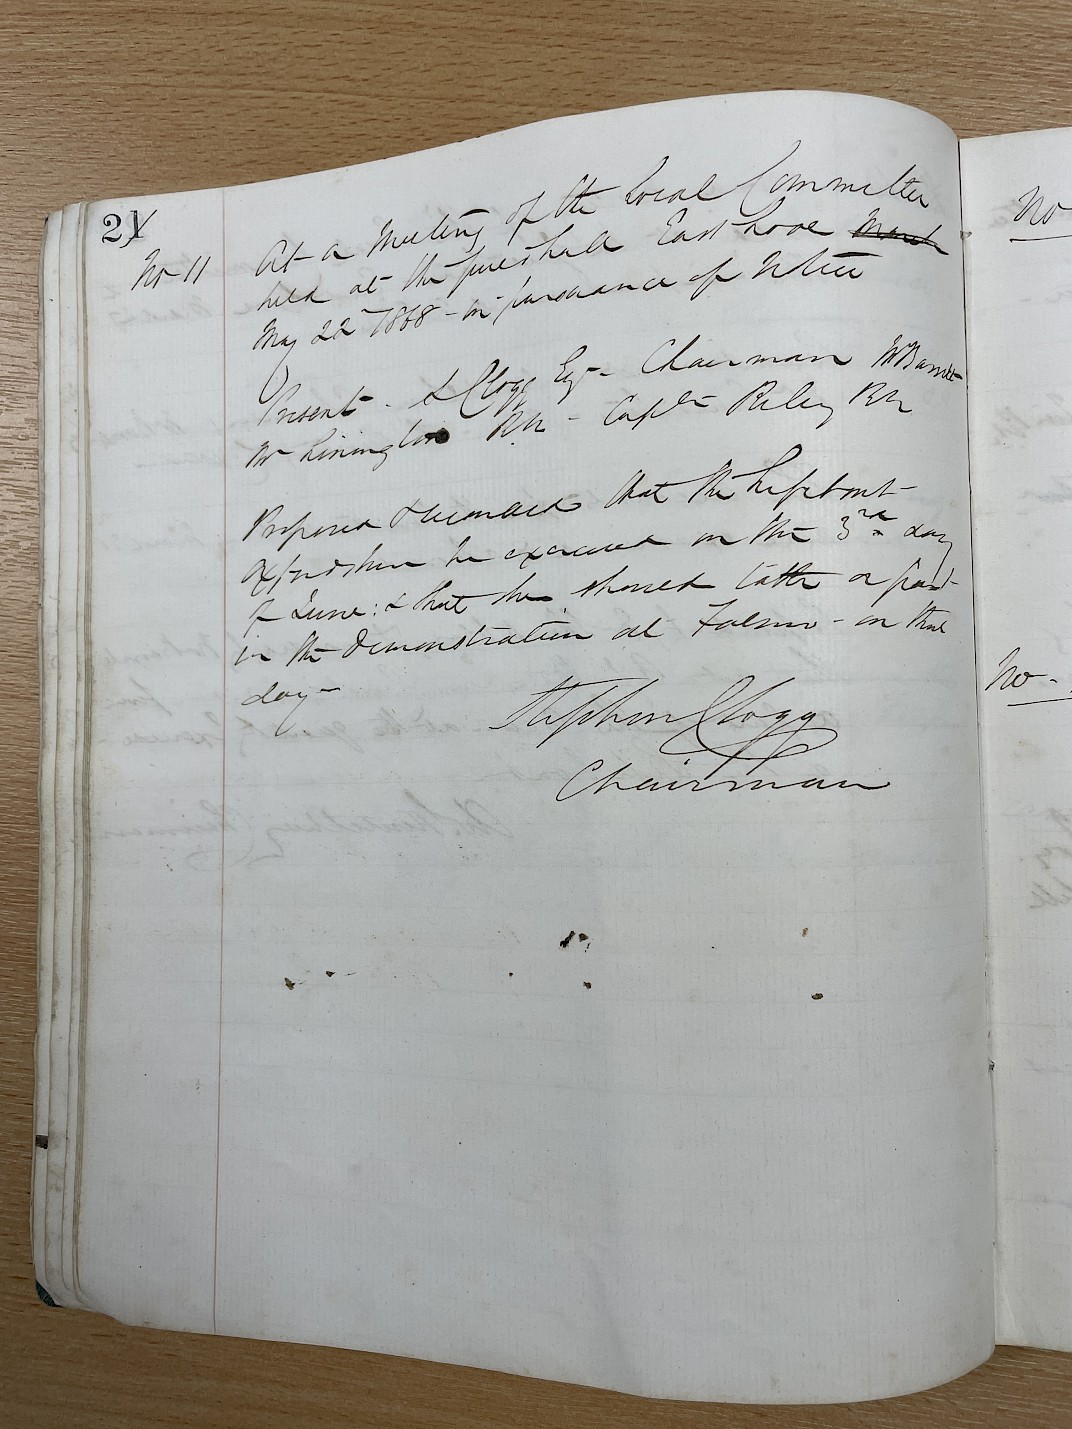 21
No 11
At a Meeting of the Local Committee
held at the public hall East Looe March
May 22nd 1868 - in pursuance of Notice
Present - S Clogg Esqr - Chairman Mr Barrett
Mr Rivington RN - Captn Riley RN
Proposed & seconded that the Lifeboat
Oxfordshire be exercised on the 3rd day
of June: & that she should take a part
in the Demonstration at Fowey - on that
day -
Stephen Clogg
Chairman
No
No -